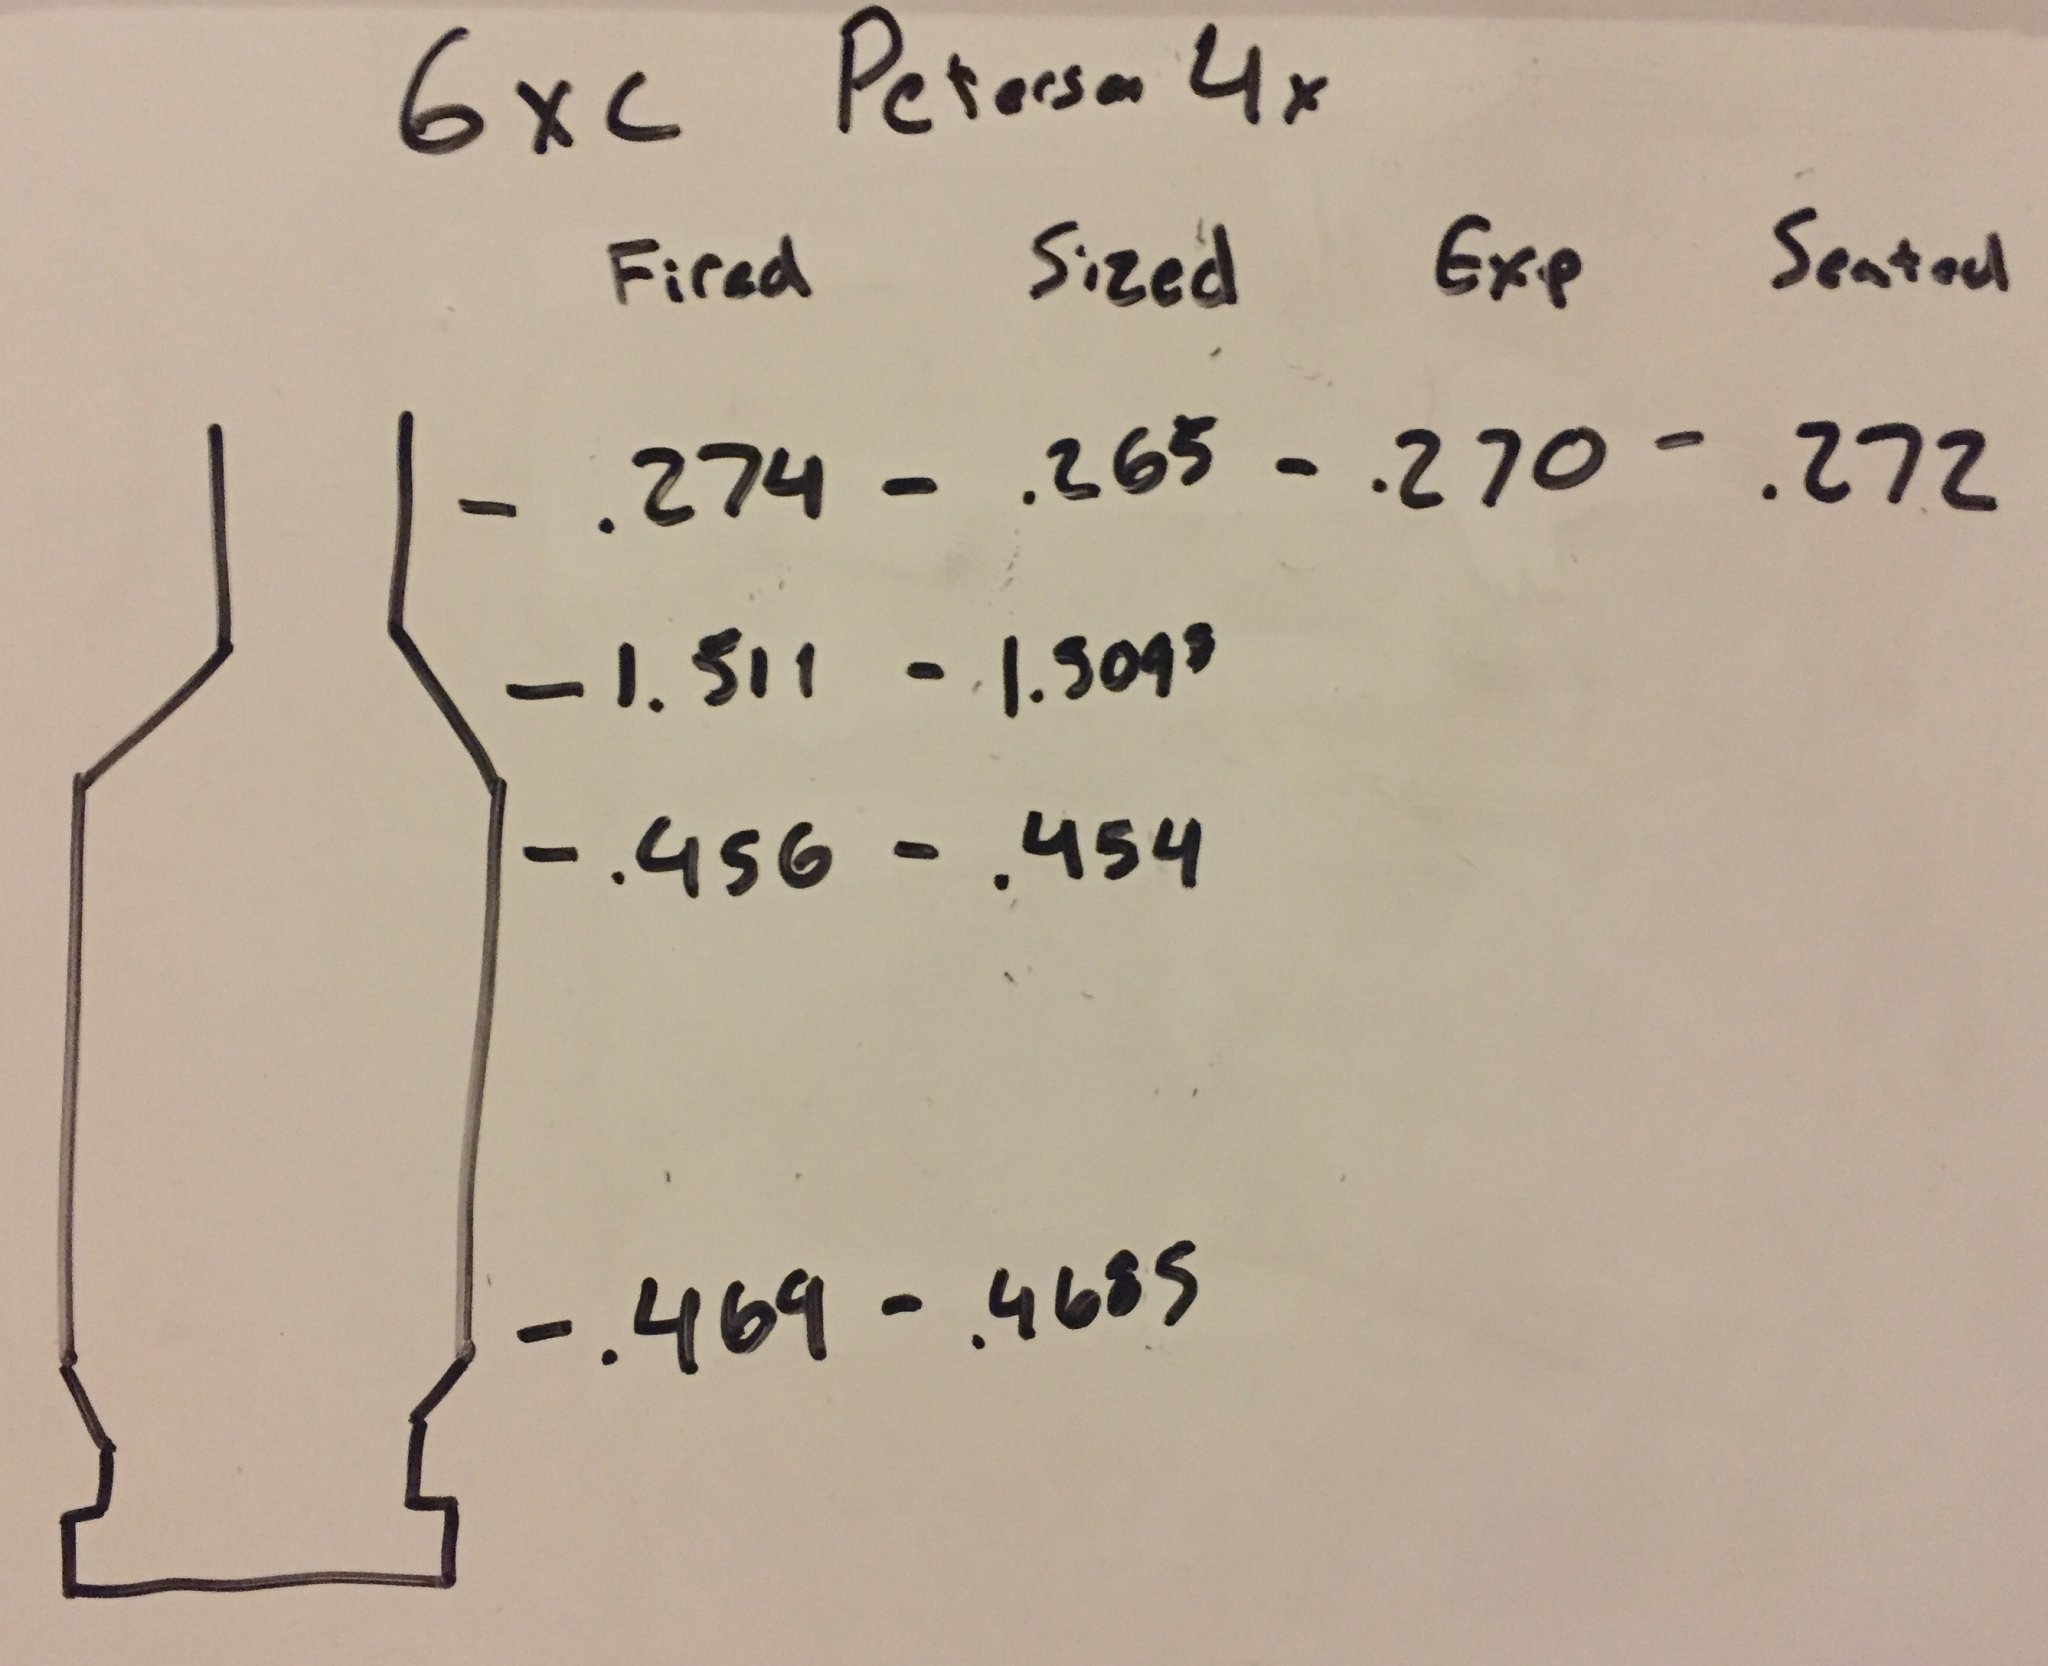 6xc Peterson 4x
Fired Sized Exp Seated
- .274 - .265 - .270 - .272
- 1.511 - 1.5095
- .456 - .454
- .469 - .4685